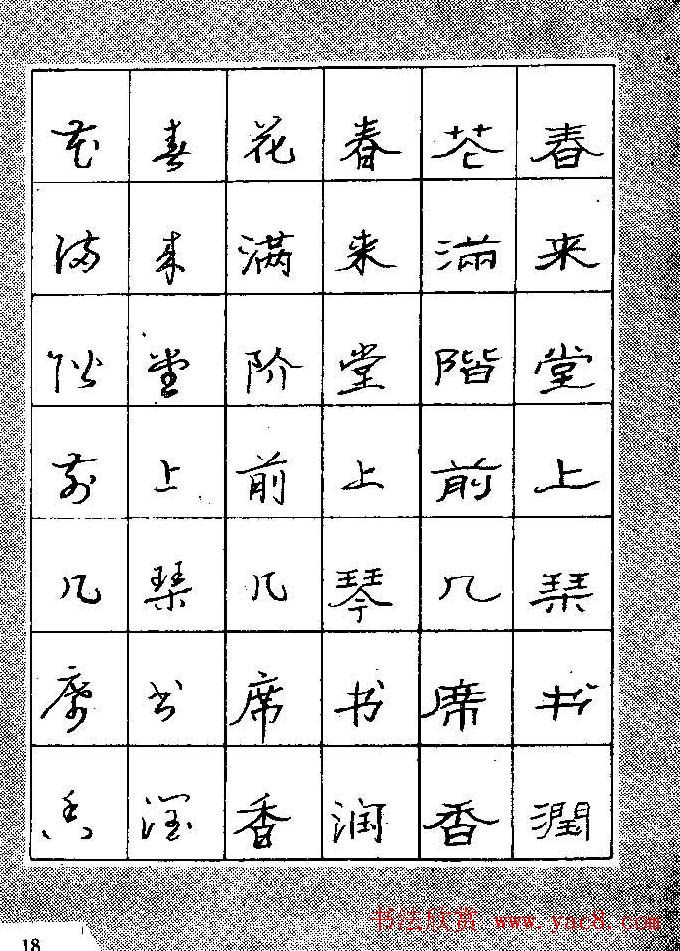 春来堂上琹书潤
花滿階前几席香
春来堂上琴书润
花满阶前几席香
春来堂上琹书润
花满阶前几席香
18
书法欣赏 www.yac8.com